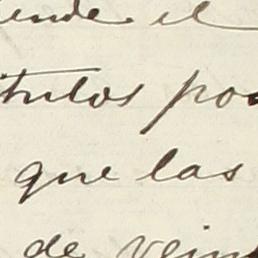 ende el
titulos po
que las
de vein